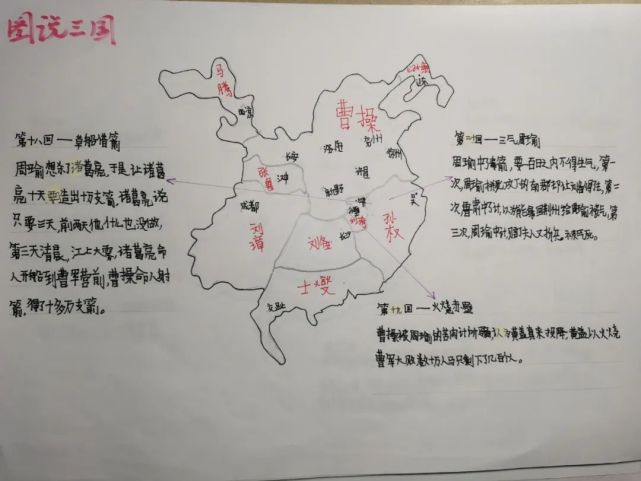 图说三国
马腾
西凉
公孙康
辽东
曹操
长安
洛阳
徐州
许昌
张鲁
汉中
新野
成都
吴
孙权
刘璋
刘备
长沙
士燮
交趾
第十八回——草船借箭
周瑜想杀了诸葛亮,于是让诸葛
亮十天要造出十万支箭,诸葛亮说
只要三天,前两天他什么也没做,
第三天清晨,江上大雾,诸葛亮命
人开船到曹军营前,曹操命人射
箭,得了十多万支箭。
回——三气周瑜
周瑜中毒箭,要百日之内不得生气,第一
次,周瑜
第二
次,
第
三次,周瑜中计,赔了夫人又折兵。
第十九回——火烧赤壁
曹操被周瑜的苦肉计所骗,以为黄盖真来投降,黄盖以火烧
曹军大败,数十万人马只剩下了几百人。